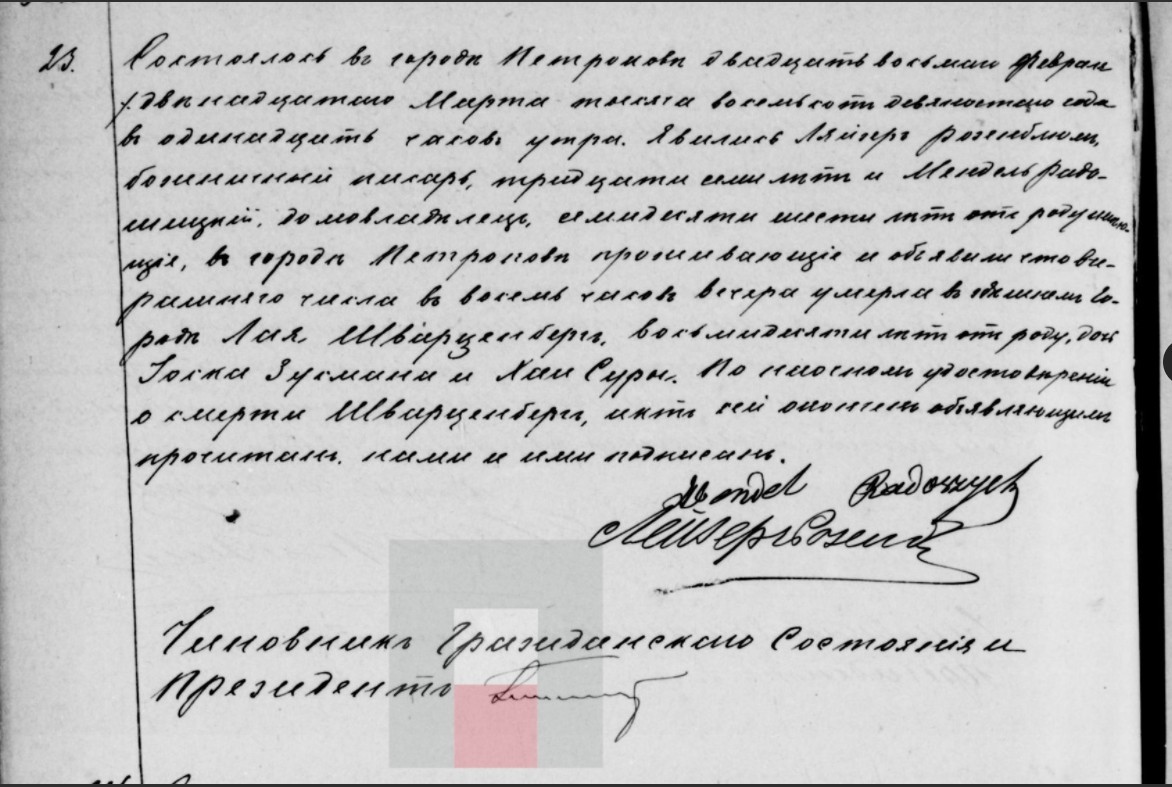 23. Состоялось въ городѣ Петроковѣ двадцать восьмаго Феврал
/двѣнадцатаго Марта тысяча восемьсотъ девяностаго года
въ одинадцать часовъ утра. Явились Лейзеръ Розенблюмъ,
божничный писарь, тридцати семи лѣтъ и Мендель Радо-
шицкій, домовладѣлецъ, семидесяти шести лѣтъ отъ роду имѣю-
щіе, въ городѣ Петроковѣ проживающіе и объявили что вче-
рашняго числа въ восемь часовъ вечера умерла въ здѣшнемъ го-
родѣ Лая Шварценбергъ, восьмидесяти лѣтъ отъ роду, дочь
Іоска Зусмана и Хаи Суры. По наочномъ удостовѣреніи
о смерти Шварценбергъ, актъ сей онымъ объявляющимъ
прочитанъ, нами и ими подписанъ.
Mendel Radoszyck
Лейзеръ Розенб
Чиновникъ Гражданскаго Состоянія и
Президентъ